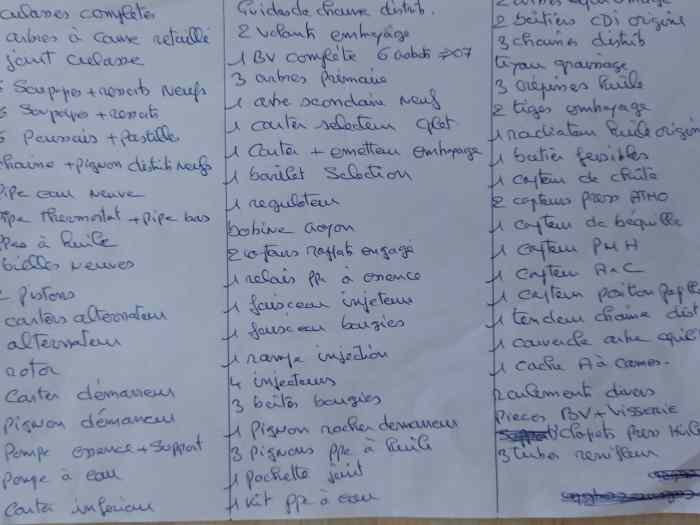 culasses complètes
arbres à came retaillé
joint culasse
Soupapes + ressorts Neufs
Soupapes + ressorts
Poussoirs + pastille
chaine + pignon distrib neufs
Pipe eau neuve
Pipe thermostat + pipe bas
ppes à huile
bielles neuves
2 pistons
carters alternateur
alternateur
rotor
Carter démarreur
pignon démarreur
Pompe essence + Support
Pompe à eau
Carter inférieur
Guides de chaine distrib.
2 Volants embrayage
1 BV complète 6 →07
3 arbres primaire
1 arbre secondaire neuf
1 carter selecteur
1 Carter + emetteur embrayage
1 barillet Selection
1 regulateur
bobine
2 rapport engagé
1 relais ppe à essence
1 faisceau injecteur
1 faisceau bougies
1 rampe injection
4 injecteurs
3 boites bougies
1 pignon rocher demarreur
3 pignons ppe à huile
1 pochette joint
1 Kit ppe à eau
2 boitiers CDi origine
3 chaines distrib
tuyau graissage
3 crépines huile
2 tiges embrayage
1 radiateur huile origin
1 boitier fusibles
1 capteur de chute
2 capteurs press ATMO
1 capteur de béquille
1 capteur PMH
1 capteur AàC
1 capteur position pap
1 tendeur chaine dist
1 couvercle arbre equil
1 cache A à Cames.
roulements divers
pieces BV + Visserie
clapets press Huile
3 tubes reniflard